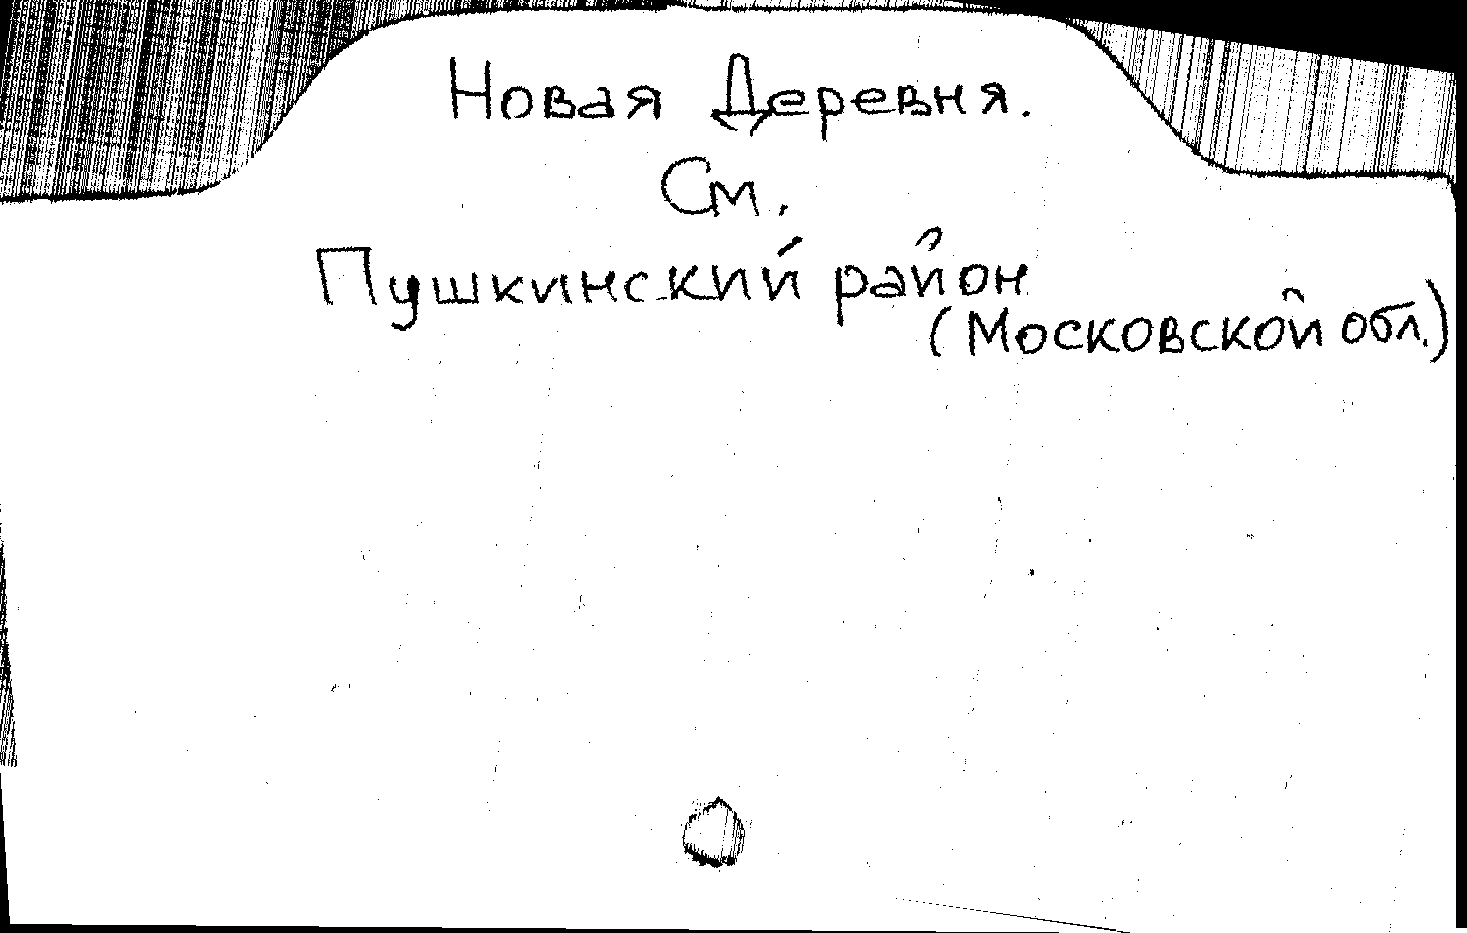 Новая Деревня.
См.
Пушкинский район
(Московской обл.)